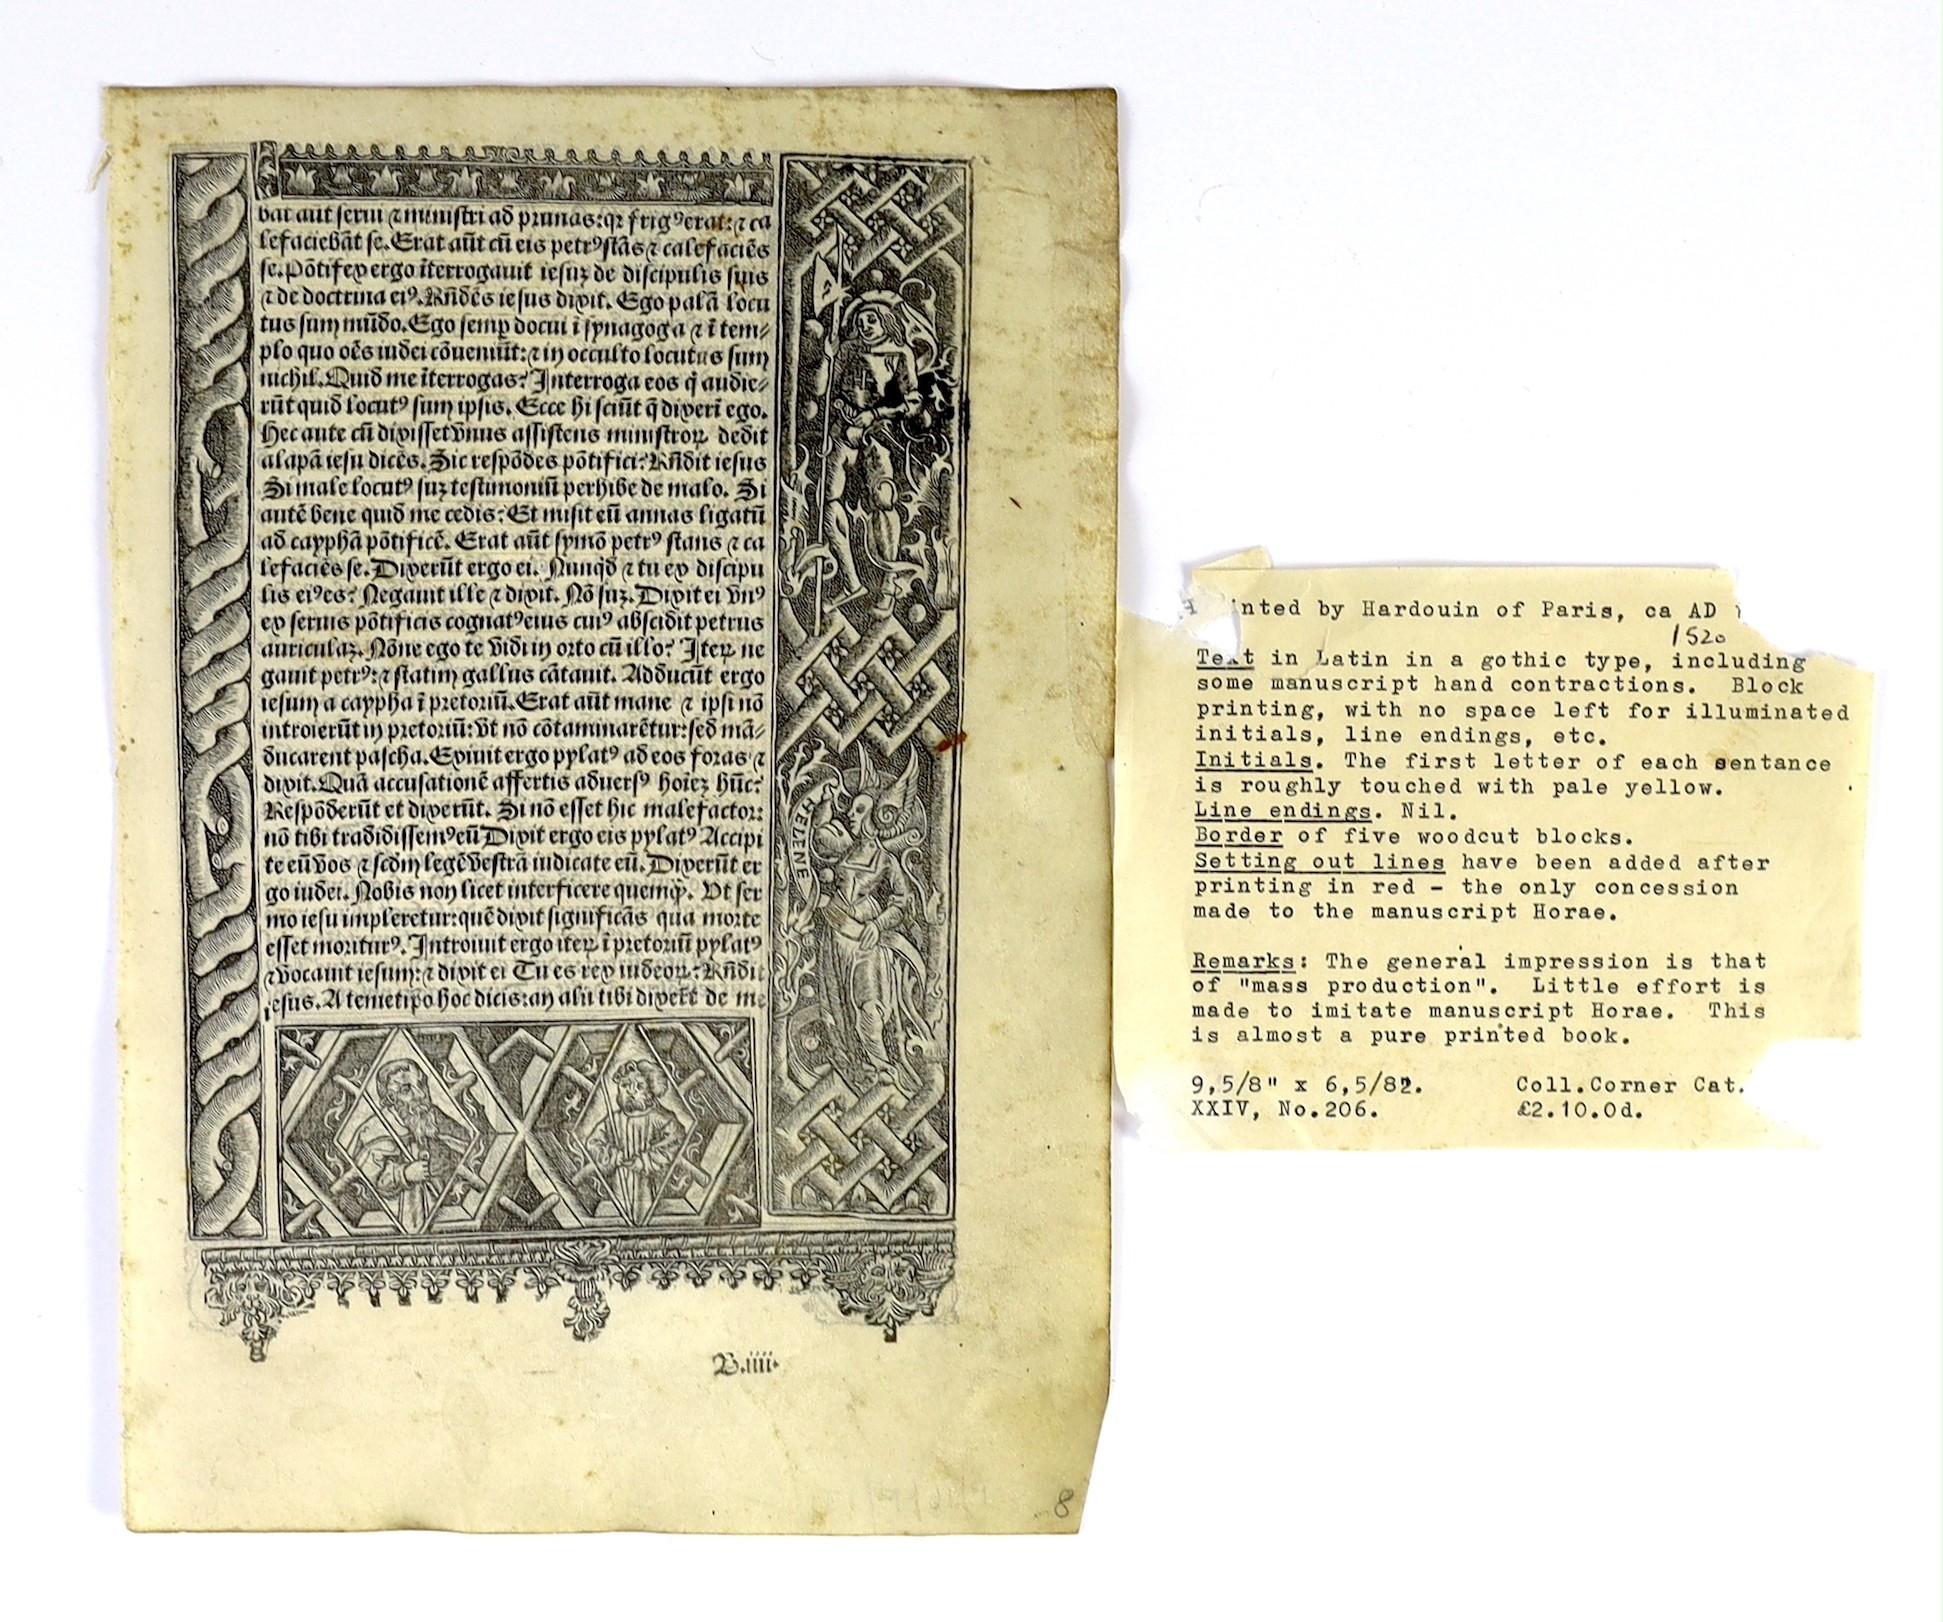 bat aut serui ⁊ ministri ad prunas: qꝛ frigꝰ erat: ⁊ ca
lefaciebãt se. Erat aũt cũ eis petrꝰ stãs ⁊ calefaciẽs
se. Põtifex ergo ĩterrogauit iesuʒ de discipulis suis
⁊ de doctrina eiꝰ. Rñdẽs iesus dixit. Ego palã locu
tus sum mũdo. Ego semꝑ docui ĩ synagoga ⁊ ĩ tem⸗
plo quo oẽs iudei cõueniũt: ⁊ in occulto locutus sum
nichil. Quid me ĩterrogas? Interroga eos q̃ audie⸗
rũt quid locutꝰ sum ipsis. Ecce hi sciũt q̃ dixerĩ ego.
Hec aute cũ dixisset vnus assistens ministroꝝ dedit
alapã iesu dicẽs. Sic respõdes põtifici? Rñdit iesus
Si male locutꝰ suʒ testimoniũ perhibe de malo. Si
autẽ bene quid me cedis? Et misit eũ annas ligatũ
ad cayphã põtificẽ. Erat aũt symõ petrꝰ stans ⁊ ca
lefaciẽs se. Dixerũt ergo ei. Nunq̃d ⁊ tu ex discipu
lis eiꝰ es? Negauit ille ⁊ dixit. Nõ suʒ. Dixit ei vnꝰ
ex seruis põtificis cognatꝰ eius cuiꝰ abscidit petrus
auriculaʒ. Nõne ego te vidi in orto cũ illo? Iteꝝ ne
gauit petrꝰ: ⁊ statim gallus cãtauit. Adducũt ergo
iesum a caypha ĩ pretoriũ. Erat aũt mane ⁊ ipsi nõ
introierũt in pretoriũ: vt nõ cõtaminarẽtur: sed mã⸗
ducarent pascha. Exiuit ergo pylatꝰ ad eos foras ⁊
dixit. Quã accusationẽ affertis aduersꝰ hoĩeʒ hũc?
Respõderũt et dixerũt. Si nõ esset hic malefactor:
nõ tibi tradidissemꝰ eũ Dixit ergo eis pylatꝰ Accipi
te eũ vos ⁊ scdm̃ legẽ vestrã iudicate eũ. Dixerũt er
go iudei. Nobis non licet interficere quemq̃. Vt ser
mo iesu impleretur: quẽ dixit significãs qua morte
esset moriturꝰ. Introiuit ergo iteꝝ ĩ pretoriũ pylatꝰ
⁊ vocauit iesum: ⁊ dixit ei Tu es rex iudeoꝝ? Rñdit
iesus. A temetipo hoc dicis: an alii tibi dixerũt de me
HELENE
B.iiii.
8
inted by Hardouin of Paris, ca AD
1520
Text in Latin in a gothic type, including
some manuscript hand contractions. Block
printing, with no space left for illuminated
initials, line endings, etc.
Initials. The first letter of each sentance
is roughly touched with pale yellow.
Line endings. Nil.
Border of five woodcut blocks.
Setting out lines have been added after
printing in red - the only concession
made to the manuscript Horae.
Remarks: The general impression is that
of "mass production". Little effort is
made to imitate manuscript Horae. This
is almost a pure printed book.
9,5/8" x 6,5/82. Coll.Corner Cat.
XXIV, No.206. £2.10.0d.